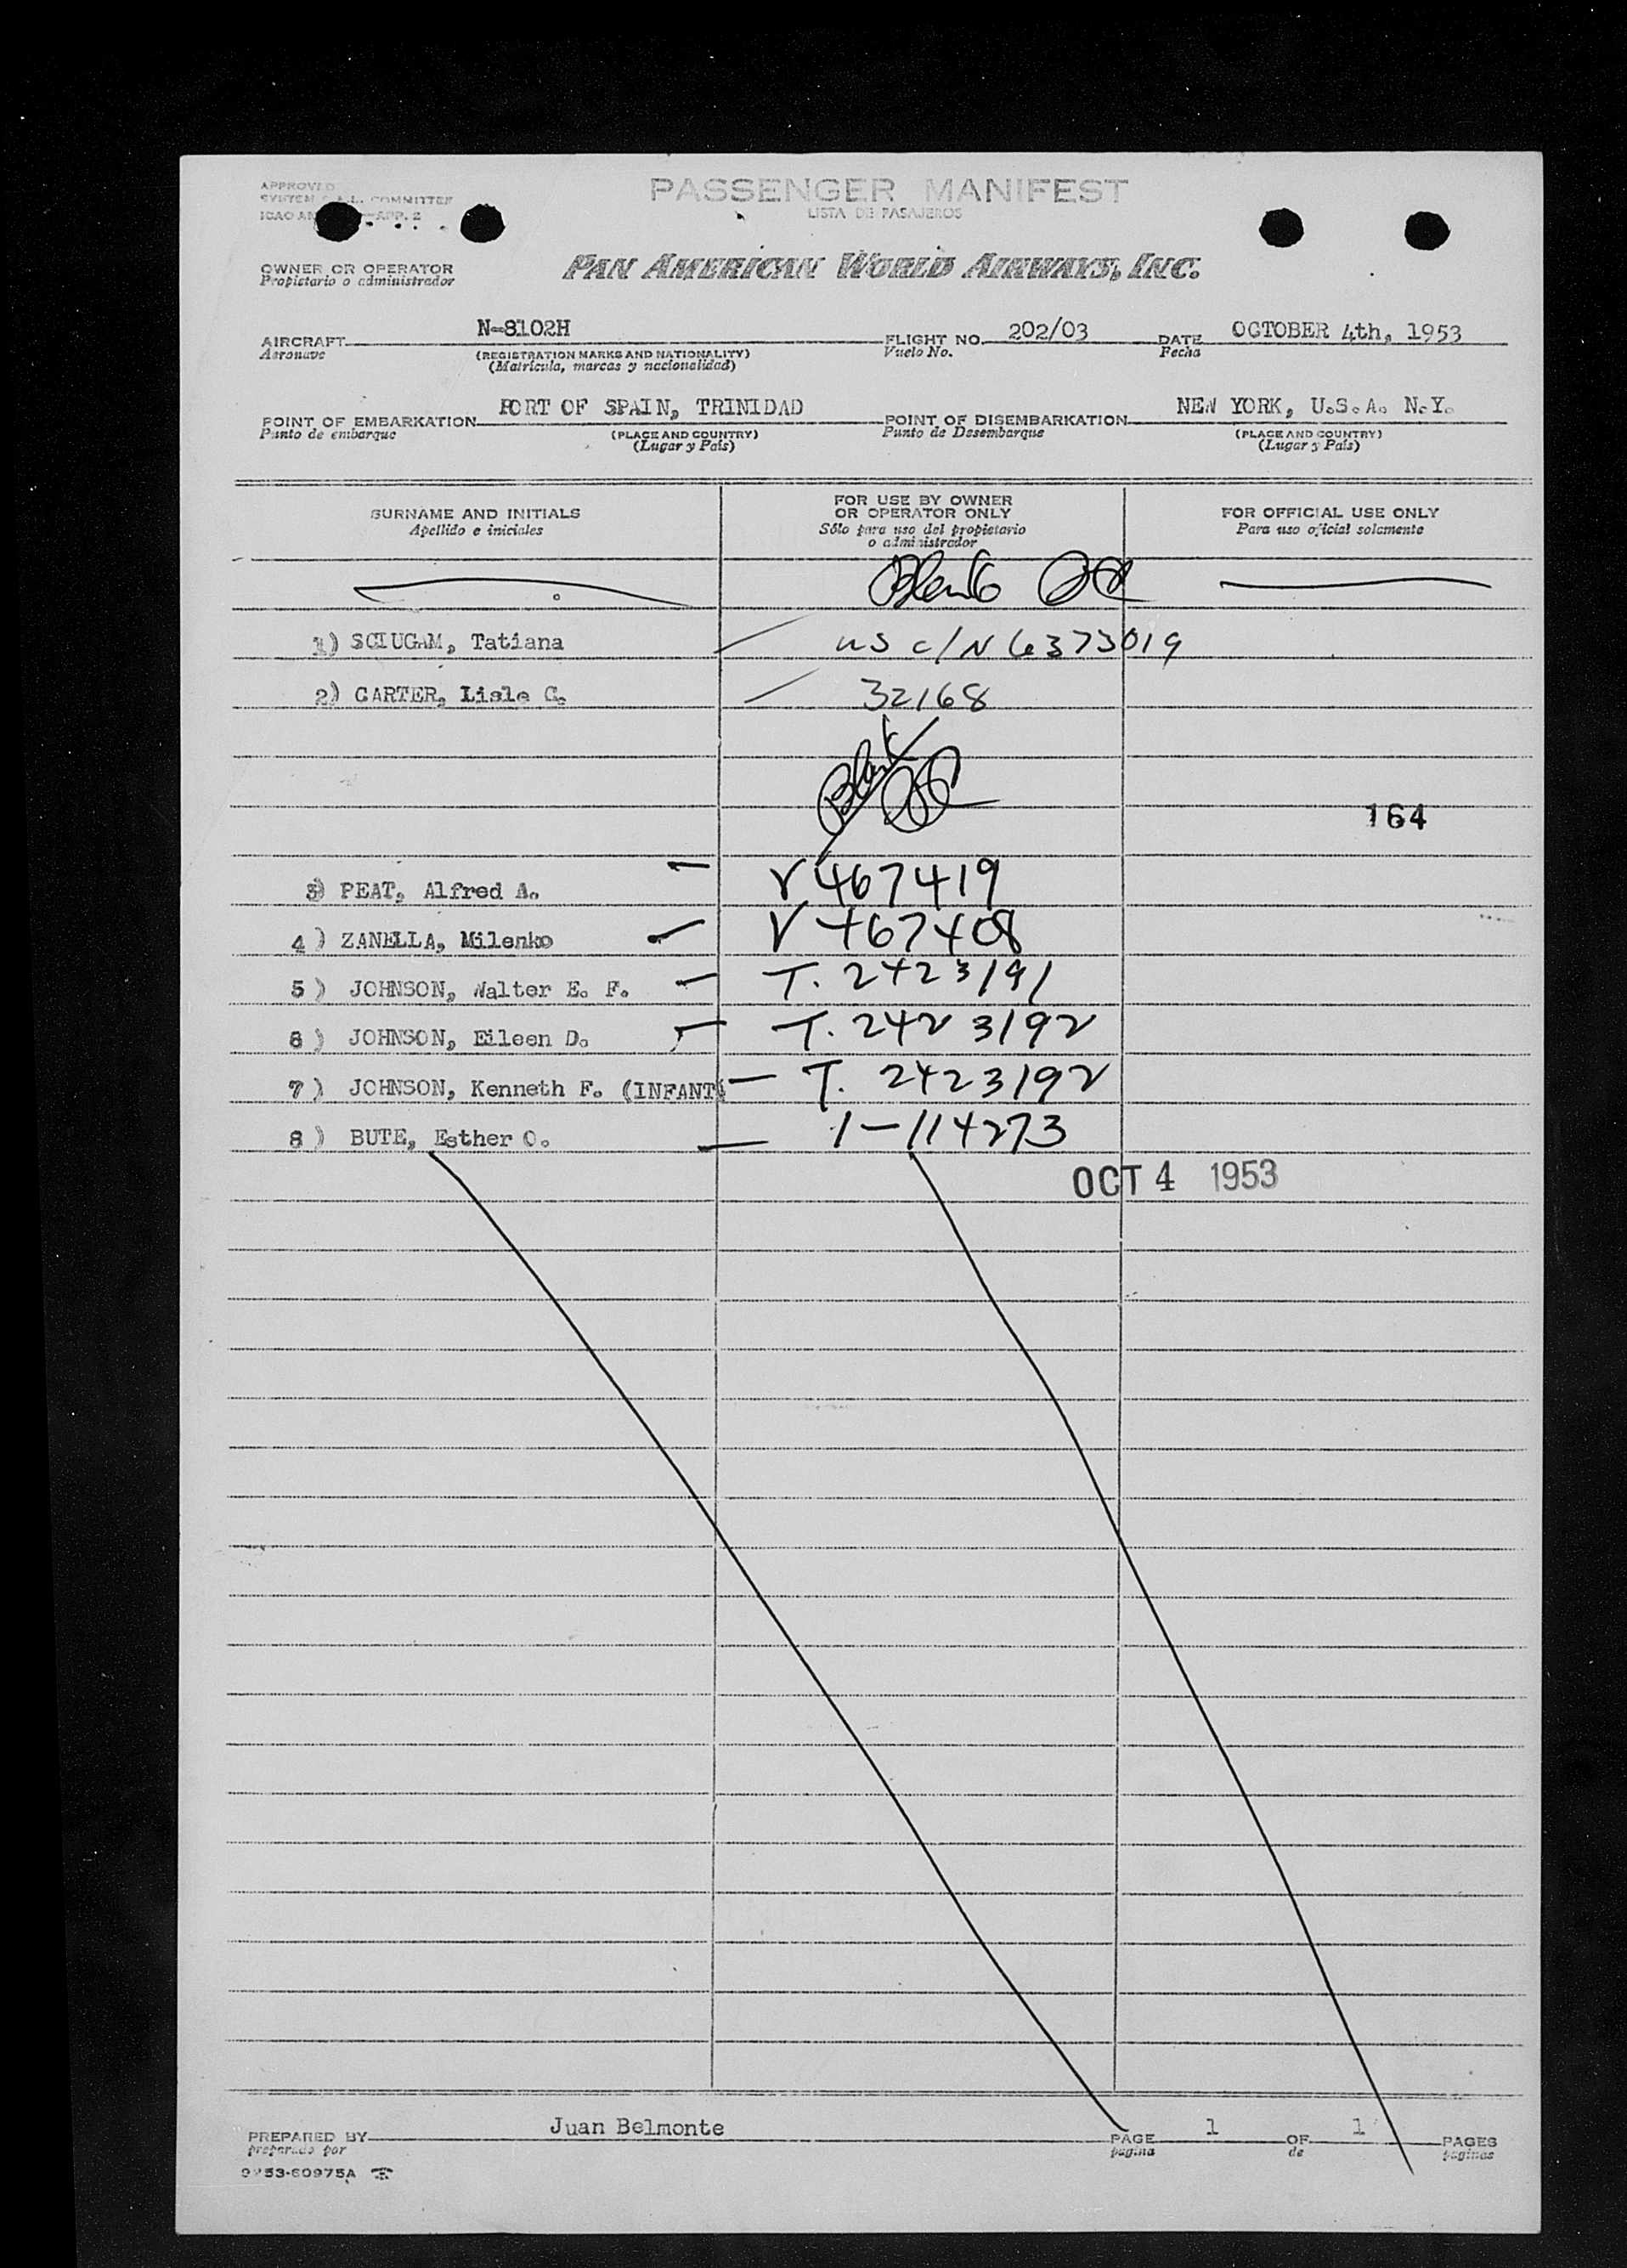 APPROVED
SYSTEM F.A.L. COMMITTEE
ICAO AN APP. 2
PASSENGER MANIFEST
LISTA DE PASAJEROS
OWNER OR OPERATOR
Propietario o administrador
PAN AMERICAN WORLD AIRWAYS, INC.
AIRCRAFT N-8102H FLIGHT NO. 202/03 DATE OCTOBER 4th, 1953
Aeronave (REGISTRATION MARKS AND NATIONALITY) Vuelo No. Fecha
(Matrícula, marcas y nacionalidad)
POINT OF EMBARKATION PORT OF SPAIN, TRINIDAD POINT OF DISEMBARKATION NEW YORK, U.S.A. N.Y.
Punto de embarque (PLACE AND COUNTRY) Punto de Desembarque (PLACE AND COUNTRY)
(Lugar y País) (Lugar y País)
SURNAME AND INITIALS FOR USE BY OWNER OR OPERATOR ONLY FOR OFFICIAL USE ONLY
Apellido e iniciales Sólo para uso del propietario o administrador Para uso oficial solamente
Blank
1) SCIUGAM, Tatiana US C/N 6373019
2) CARTER, Lisle C. 32168
Blank
164
3) PEAT, Alfred A. V 467419
4) ZANELLA, Milenko V 467408
5) JOHNSON, Walter E. F. T. 2423191
6) JOHNSON, Eileen D. T. 2423192
7) JOHNSON, Kenneth F. (INFANT) T. 2423192
8) BUTE, Esther O. 1-114273
OCT 4 1953
PREPARED BY Juan Belmonte PAGE 1 OF 1 PAGES
preparado por página de páginas
9253-60975A